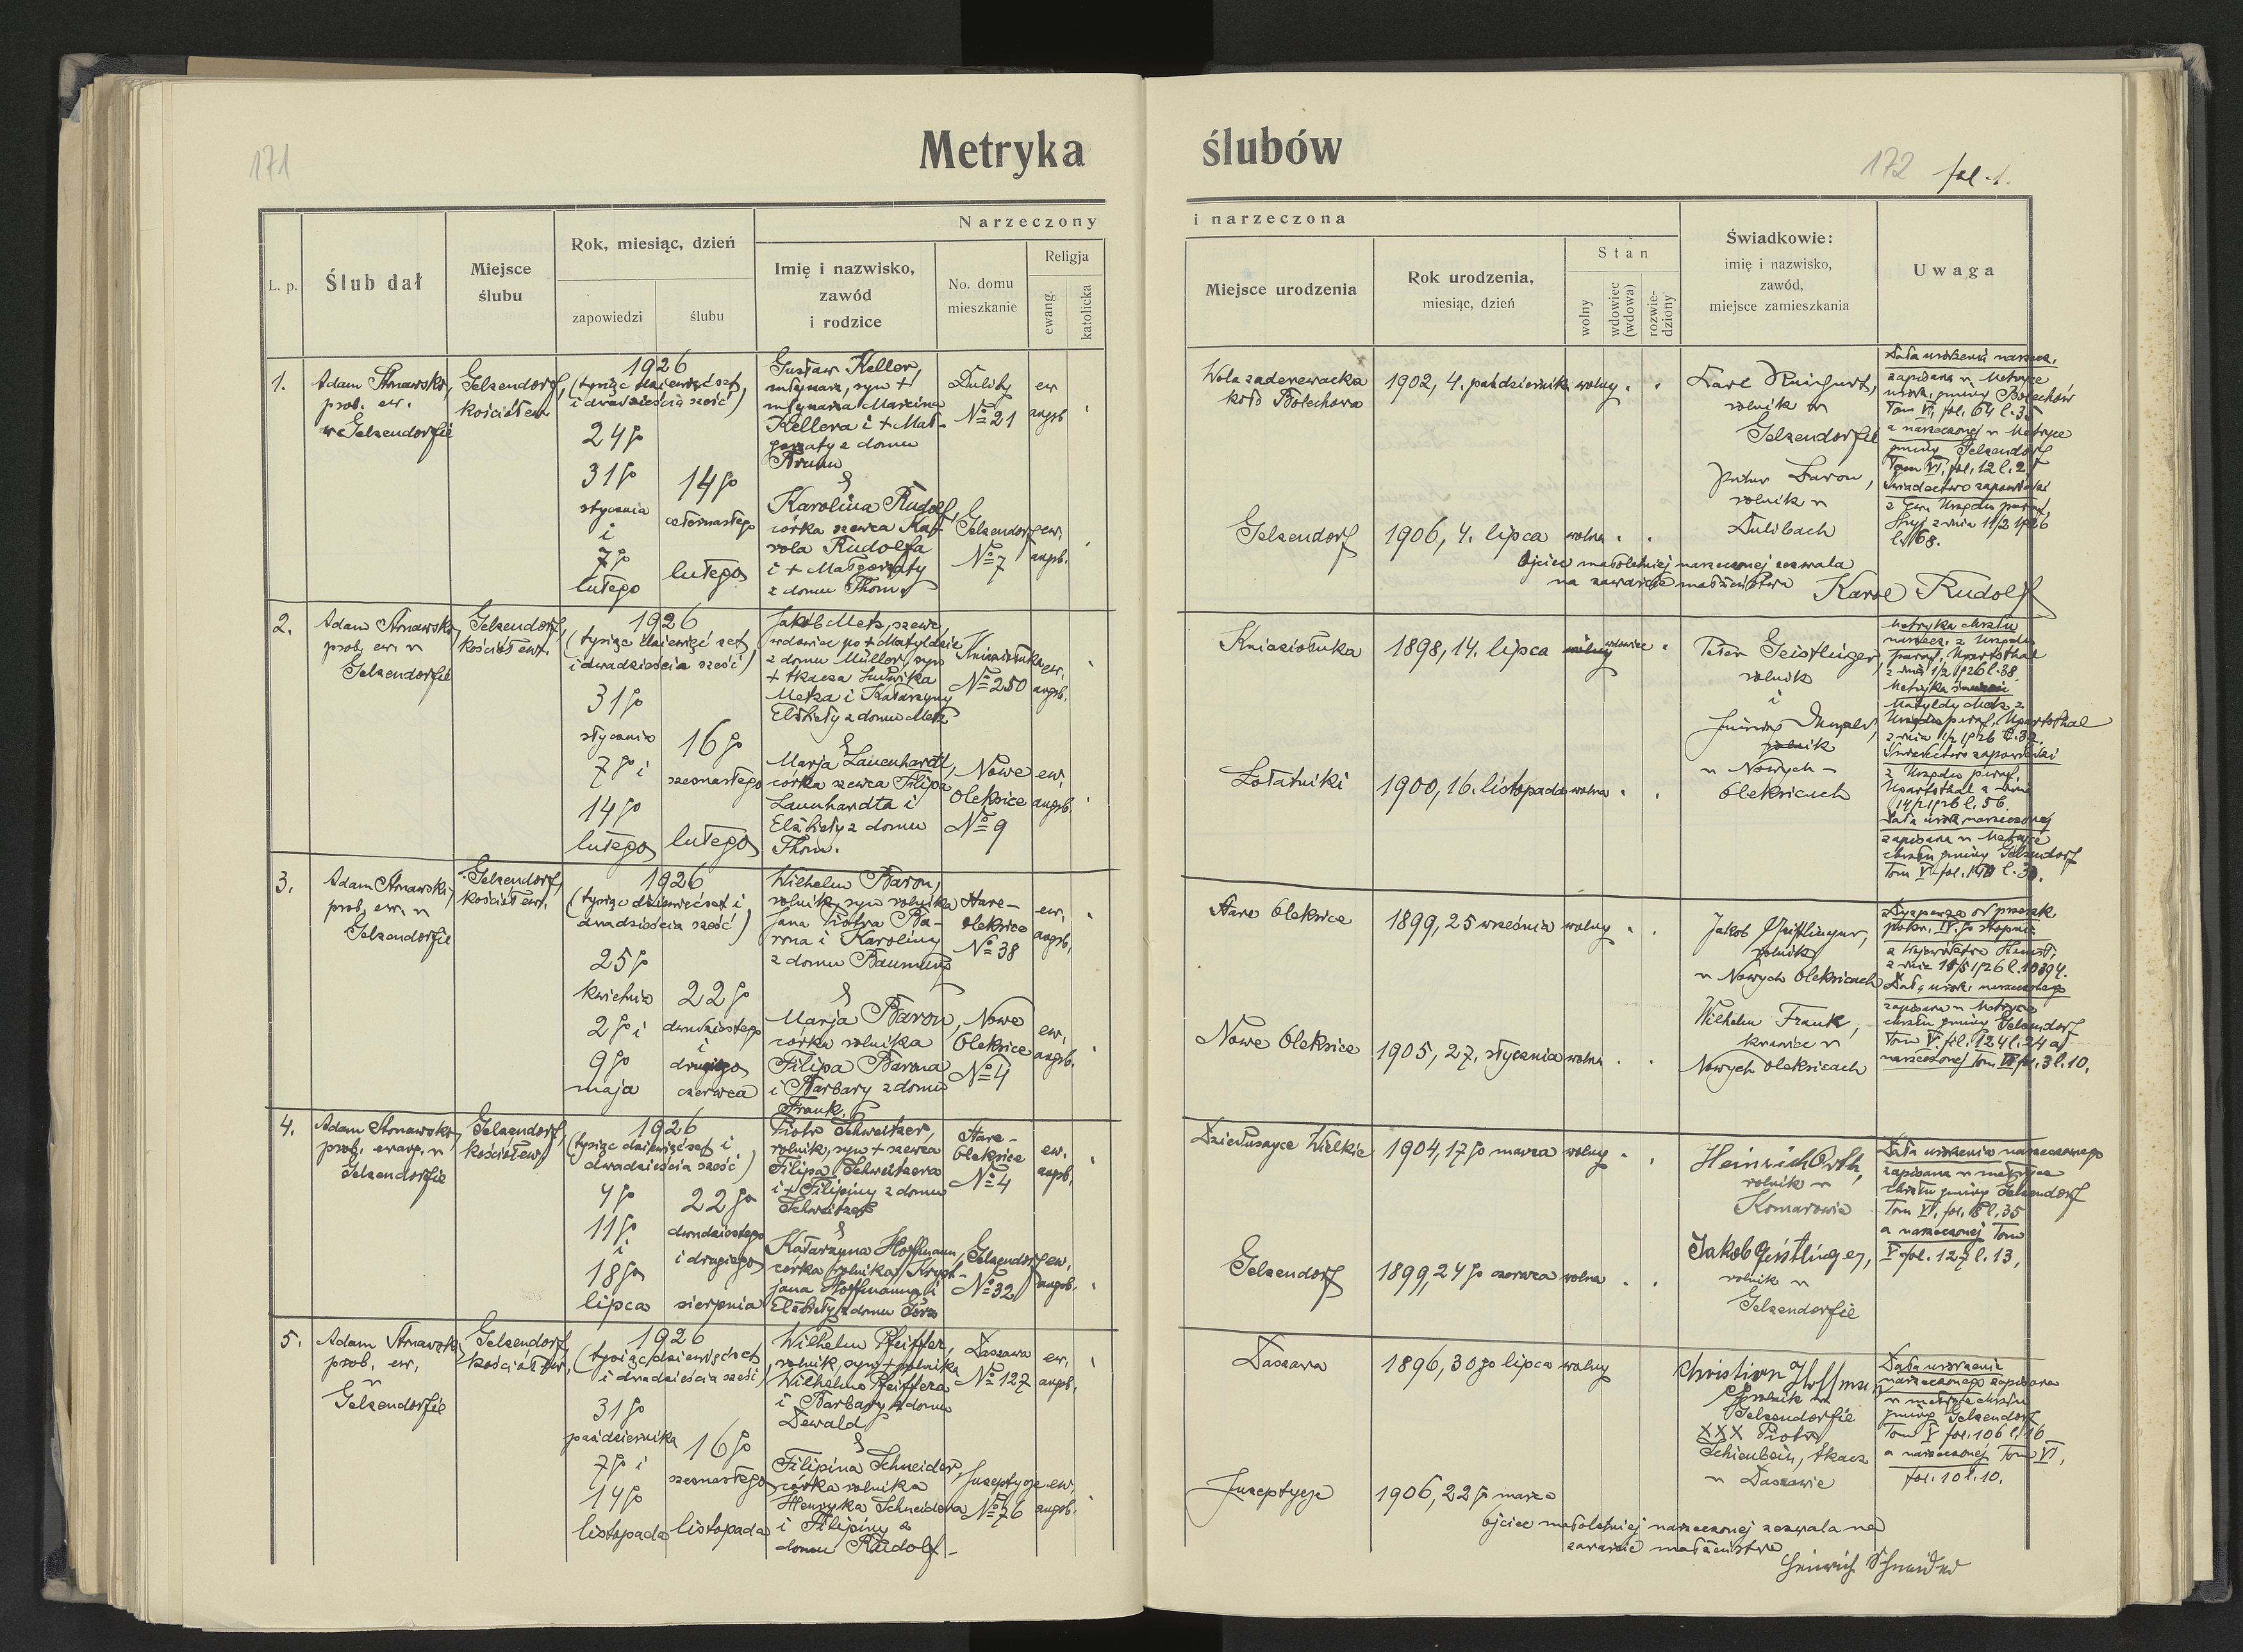 171
Metryka
ślubów
172 fol. 1.
L. p.
Ślub dał
Miejsce
ślubu
Rok, miesiąc, dzień
zapowiedzi
ślubu
Narzeczony
Imię i nazwisko,
zawód
i rodzice
No. domu
mieszkanie
Religja
ewang.
katolicka
i narzeczona
Miejsce urodzenia
Rok urodzenia,
miesiąc, dzień
Stan
wolny
wdowiec
(wdowa)
rozwie-
dziony
Świadkowie:
imię i nazwisko,
zawód,
miejsce zamieszkania
Uwaga
1.
Adam
prob. ew.
w Gelsendorfie
Gelsendorf,
kościół ew.
1926
(tysiąc dziewięćset
i dwadzieścia sześć)
24go
31go
stycznia
i
7go
lutego
14go
czternastego
lutego
Gustaw Keller,
młynarz, syn +
młynarza Marcina
Kellera i + Mał-
gorzaty z domu
&
Karolina Rudolf,
córka szewca Ka-
rola Rudolfa
i + Małgorzaty
z domu Thom
Duliby
No 21
Gelsendorf
No 7
ew.
augsb.
ew.
augsb.
Wola zaderewacka
koło Bolechowa
1902, 4. października
wolny
Gelsendorf
1906, 4. lipca
wolna
Karl
rolnik w
Gelsendorfie
Baron,
rolnik w
Dulibach
Data urodzenia narzecz.
zapisana w Metryce
urodz. gminy Bolechów
Tom VI, fol. 64 l. 35
a narzeczonej w Metryce
gminy Gelsendorf
Tom VI, fol. 12 l. 2
Świadectwo zapowiedzi
z Urzędu paraf.
Stryj z dnia 11/2 1926
l. 168.
Ojciec małoletniej narzeczonej zezwala
na zawarcie małżeństwa
Karol Rudolf
2.
Adam
prob. ew. w
Gelsendorfie
Gelsendorf,
kościół ew.
1926
(tysiąc dziewięćset
i dwadzieścia sześć)
31go
stycznia
7go i
14go
lutego
16go
szesnastego
lutego
Jakób Metz, szewc,
wdowiec po + Matyldzie
z domu Müller, syn
+ tkacza Ludwika
Metza i Katarzyny
Elżbiety z domu Metz
&
Marja Lauenhardt,
córka szewca Filipa
Launhardta i
Elżbiety z domu
Thom.
Kniaziołuka
No 250
Nowe
Oleksice
No 9
ew.
augsb.
ew.
augsb.
Kniaziołuka
1898, 14. lipca
wolny wdowiec
Łotatniki
1900, 16. listopada
wolna
Peter Geistlinger,
rolnik
i
rolnik
w Nowych-
Oleksicach
Metryka chrztu
narzecz. z Urzędu
paraf. Ugartsthal
z dnia 1/2 1926 l. 38.
Metryka śmierci
Matyldy Metz z
Urzędu paraf. Ugartsthal
z dnia 1/2 1926 l. 39.
Świadectwo zapowiedzi
z Urzędu paraf.
Ugartsthal z dnia
14/2 1926 l. 56.
Data urodz. narzeczonej
zapisana w Metryce
chrztu gminy Gelsendorf
3.
Adam
prob. ew. w
Gelsendorfie
Gelsendorf,
kościół ew.
1926
(tysiąc dziewięćset i
dwadzieścia sześć)
25go
kwietnia
2go i
9go
maja
22go
dwudziestego
i
drugiego
czerwca
Wilhelm Baron,
rolnik, syn rolnika
Jana Piotra Ba-
rona i Karoliny
z domu Baumung
&
Marja Baron,
córka rolnika
Filipa Barona
i Barbary z domu
Frank.
Stare-
Oleksice
No 38
Nowe
Oleksice
No 4
ew.
augsb.
ew.
augsb.
Stare Oleksice
1899, 25 września
wolny
Nowe Oleksice
1905, 27. stycznia
wolna
Jakob Geistlinger,
rolnik
w Nowych Oleksicach
Wilhelm Frank,
krawiec w
Nowych Oleksicach
Dyspenza od przeszk.
pokr. IV. go stopnia
z Województwa Stanisł.
Data urodz. narzeczonego
zapisana w Metryce
chrztu gminy Gelsendorf
Tom V. fol. 124 l. 24 a
narzeczonej Tom VI fol. 3 l. 10.
4.
Adam
prob. ewang. w
Gelsendorfie
Gelsendorf,
kościół ew.
1926
(tysiąc dziewięćset i
dwadzieścia sześć)
4go
11go
i
18go
lipca
22go
dwudziestego
i drugiego
sierpnia
Piotr Schweitzer,
rolnik, syn + szewca
Filipa Schweitzera
i + Filipiny z domu
Schweitzer
&
Katarzyna Hoffmann,
córka rolnika Kryst-
jana Hoffmanna i
Elżbiety z domu
Stare-
Oleksice
No 4
Gelsendorf
No 32
ew.
augsb.
ew.
augsb.
Dzieduszyce Wielkie
1904, 17go marca
wolny
Gelsendorf
1899, 24go czerwca
wolna
Heinrich Orth,
rolnik w
Komarowie
Jakob Geistlinger,
rolnik w
Gelsendorfie
Data urodzenia narzeczonego
zapisana w metryce
chrztu gminy Gelsendorf
a narzeczonej Tom
V fol. 127 l. 13,
5.
Adam
prob. ew.
w
Gelsendorfie
Gelsendorf
kościół ew.
1926
(tysiąc dziewięćset
i dwadzieścia sześć)
31go
października
7go i
14go
listopada
16go
szesnastego
listopada
Wilhelm Pfeiffer,
rolnik, syn + rolnika
Wilhelma Pfeiffera
i Barbary z domu
Dewald
&
Filipina Schneider,
córka rolnika
Henryka Schneidera
i Filipiny z
domu Rudolf
Daszawa
No 127
Juseptycze
No 76
ew.
augsb.
ew.
augsb.
Daszawa
1896, 30go lipca
wolny
Juseptycze
1906, 22go marca
Christian Hoffmann
rolnik w
Gelsendorfie
XXX Piotr
Schienbein, tkacz
w Daszawie
Data urodzenia
narzeczonego zapisana
w metryce chrztu
gminy Gelsendorf
Tom V fol. 106 l. 16
a narzeczonej Tom VI,
fol. 10 l. 10.
Ojciec małoletniej narzeczonej zezwala na
zawarcie małżeństwa
Heinrich Schneider